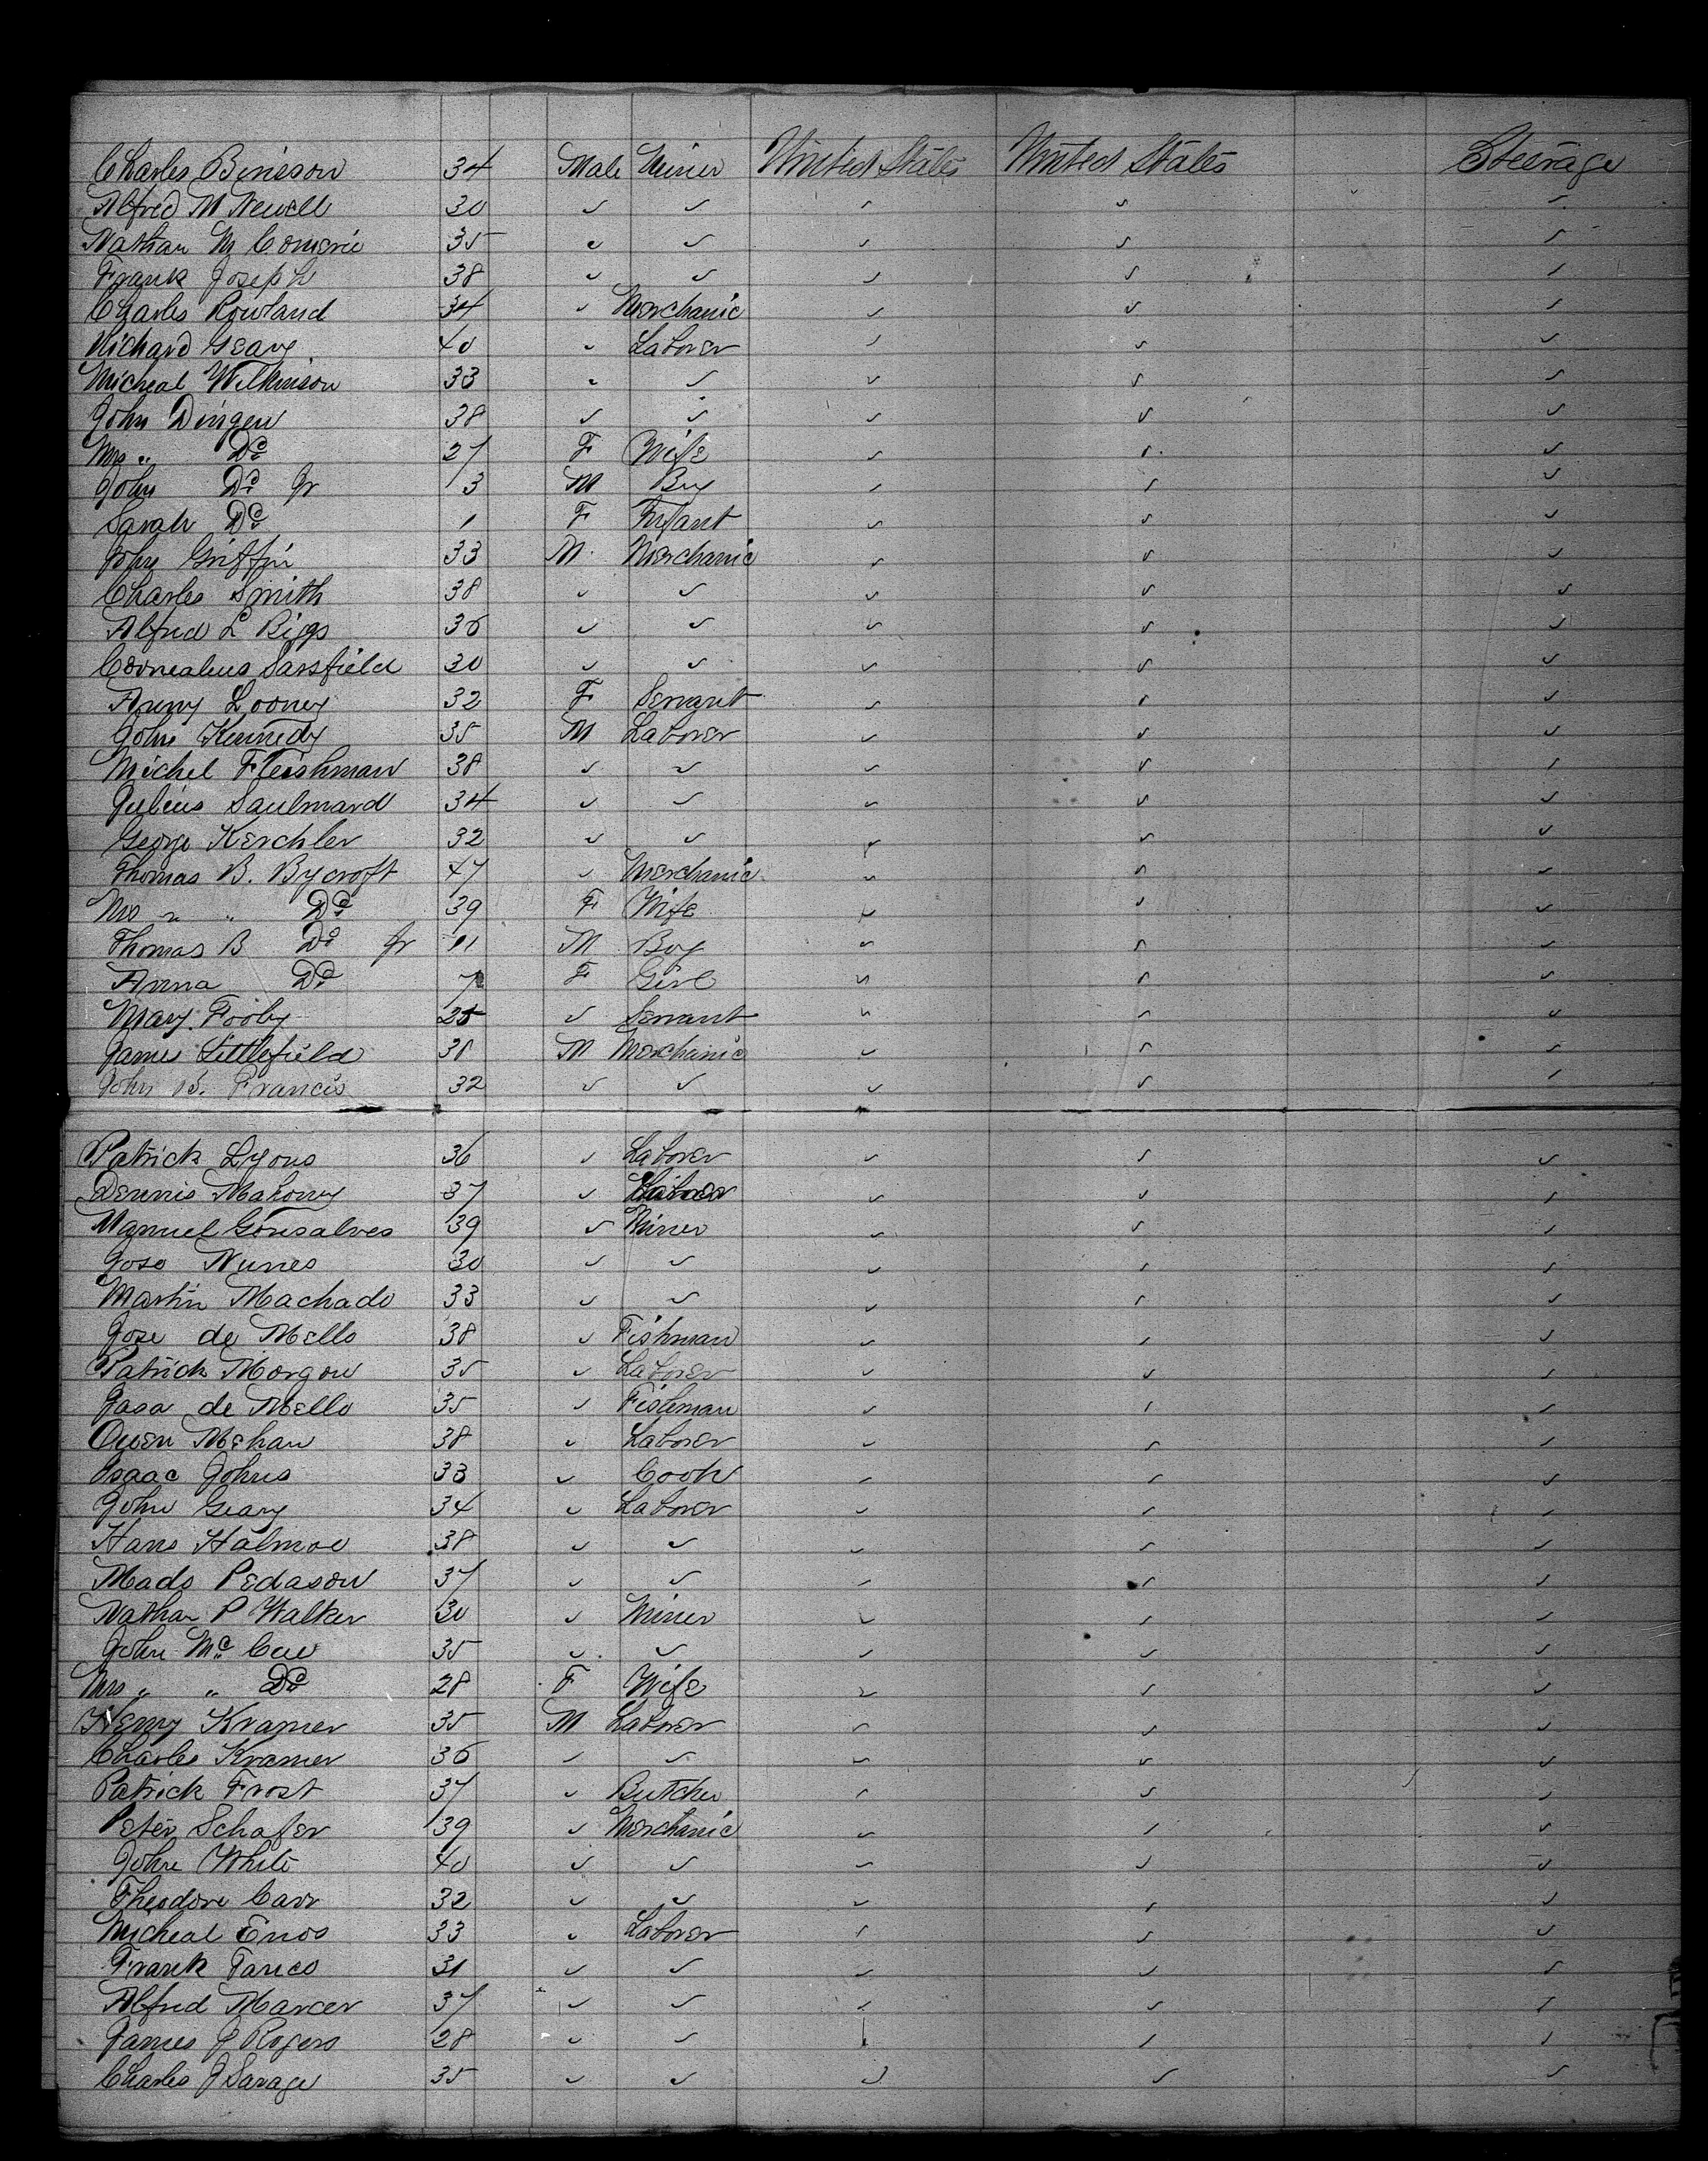 Charles Binsson 34 Male Miner United States United States Steerage
Alfred M Newell 30 ✓ ✓ ✓ ✓ ✓
Nathan M Comerie 35 ✓ ✓ ✓ ✓ ✓
Frank Joseph 38 ✓ ✓ ✓ ✓ ✓
Charles Rowland 34 ✓ Merchanic ✓ ✓ ✓
Richard Geary 40 ✓ Laborer ✓ ✓ ✓
Micheal Wilkinson 33 ✓ ✓ ✓ ✓ ✓
John Dingen 38 ✓ ✓ ✓ ✓ ✓
Mrs " Do 27 F Wife ✓ ✓ ✓
John Do Jr 3 M Boy ✓ ✓ ✓
Sarah Do 1 F Infant ✓ ✓ ✓
John Griffin 33 M Merchanic ✓ ✓ ✓
Charles Smith 38 ✓ ✓ ✓ ✓ ✓
Alfred L Biggs 36 ✓ ✓ ✓ ✓ ✓
Cornealius Sarsfield 30 ✓ ✓ ✓ ✓ ✓
Anny Looney 32 F Servant ✓ ✓ ✓
John Kennedy 35 M Laborer ✓ ✓ ✓
Michel Fleishman 38 ✓ ✓ ✓ ✓ ✓
Julius Saulmard 34 ✓ ✓ ✓ ✓ ✓
George Kerchler 32 ✓ ✓ ✓ ✓ ✓
Thomas B. Bycroft 47 ✓ Merchanic ✓ ✓ ✓
Mrs " " Do 39 F Wife ✓ ✓ ✓
Thomas B Do Jr 11 M Boy ✓ ✓ ✓
Anna Do 7 F Girl ✓ ✓ ✓
Mary Fooly 25 ✓ Servant ✓ ✓ ✓
James Littlefield 38 M Merchanic ✓ ✓ ✓
John B. Francis 32 ✓ ✓ ✓ ✓ ✓
Patrick Lyons 36 ✓ Laborer ✓ ✓ ✓
Dennis Mahoney 37 ✓ ✓ ✓ ✓
Manuel Gonsalves 39 ✓ Miner ✓ ✓ ✓
Jose Nunes 30 ✓ ✓ ✓ ✓ ✓
Martin Machado 33 ✓ ✓ ✓ ✓ ✓
Jose de Mello 38 ✓ Fishman ✓ ✓ ✓
Patrick Morgon 35 ✓ Laborer ✓ ✓ ✓
Jasa de Mello 35 ✓ Fishman ✓ ✓ ✓
Owen Mehan 38 ✓ Laborer ✓ ✓ ✓
Isaac Johns 33 ✓ Cook ✓ ✓ ✓
John Geary 34 ✓ Laborer ✓ ✓ ✓
Hans Halmoe 38 ✓ ✓ ✓ ✓ ✓
Mads Pedason 37 ✓ ✓ ✓ ✓ ✓
Nathan P Walker 30 ✓ Miner ✓ ✓ ✓
John Mc Cue 35 ✓ ✓ ✓ ✓ ✓
Mrs " " Do 28 F Wife ✓ ✓ ✓
Henry Kramer 35 M Laborer ✓ ✓ ✓
Charles Kramer 36 ✓ ✓ ✓ ✓ ✓
Patrick Frost 37 ✓ Butcher ✓ ✓ ✓
Peter Schafer 39 ✓ Merchanic ✓ ✓ ✓
John White 40 ✓ ✓ ✓ ✓ ✓
Theodore Carr 32 ✓ ✓ ✓ ✓ ✓
Micheal Enos 33 ✓ Laborer ✓ ✓ ✓
Frank Tarico 31 ✓ ✓ ✓ ✓ ✓
Alfred Marcer 37 ✓ ✓ ✓ ✓ ✓
James J Rogers 28 ✓ ✓ ✓ ✓ ✓
Charles J Savage 35 ✓ ✓ ✓ ✓ ✓